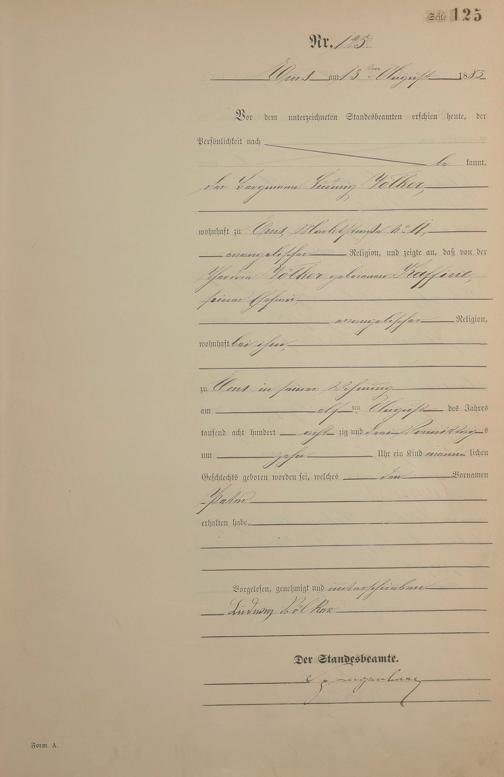 Seite 125
Nr. 125
Ems am 13ten August 1883
Vor dem unterzeichneten Standesbeamten erschien heute, der
Persönlichkeit nach
be kannt,
der Bergmann Ludwig Völker,
wohnhaft zu Ems, No 11,
evangelischer Religion, und zeigte an, daß von der
Völker geborenen
seiner Ehefrau
evangelischer Religion,
wohnhaft bei ihm,
zu Ems in seiner Wohnung
am elften August des Jahres
tausend acht hundert acht zig und drei Vormittags
um zehn Uhr ein Kind männ lichen
Geschlechts geboren worden sei, welches den Vornamen
erhalten habe
Vorgelesen, genehmigt und unterschrieben
Ludwig Völker
Der Standesbeamte.
Form. A.